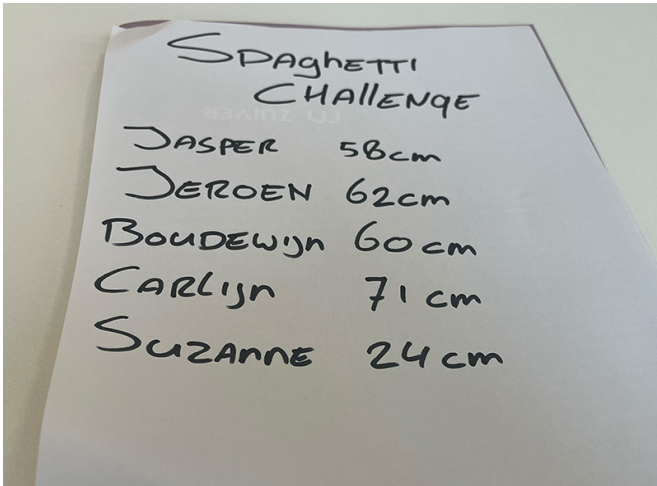 Spaghetti
Challenge
Jasper 58cm
Jeroen 62cm
Boudewijn 60cm
Carlijn 71cm
Suzanne 24cm